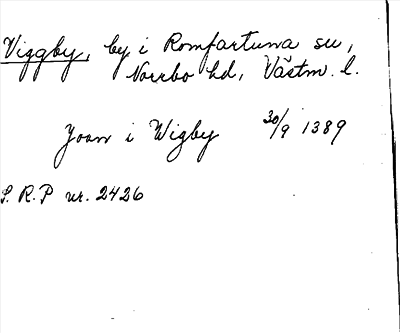 Viggby, by i Romfartuna sn,
Norrbo hd, Västm. l.
Joan i Wigby 30/9 1389
S.R.P nr. 2426